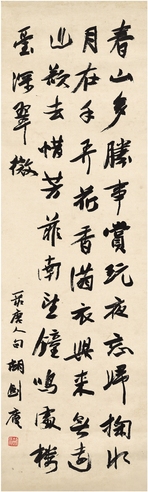 春山多勝事賞玩夜忘歸掬水
月在手弄花香滿衣興來無遠
近欲去惜芳菲南望鐘鳴處樓
臺深翠微
录唐人句 胡劍庵